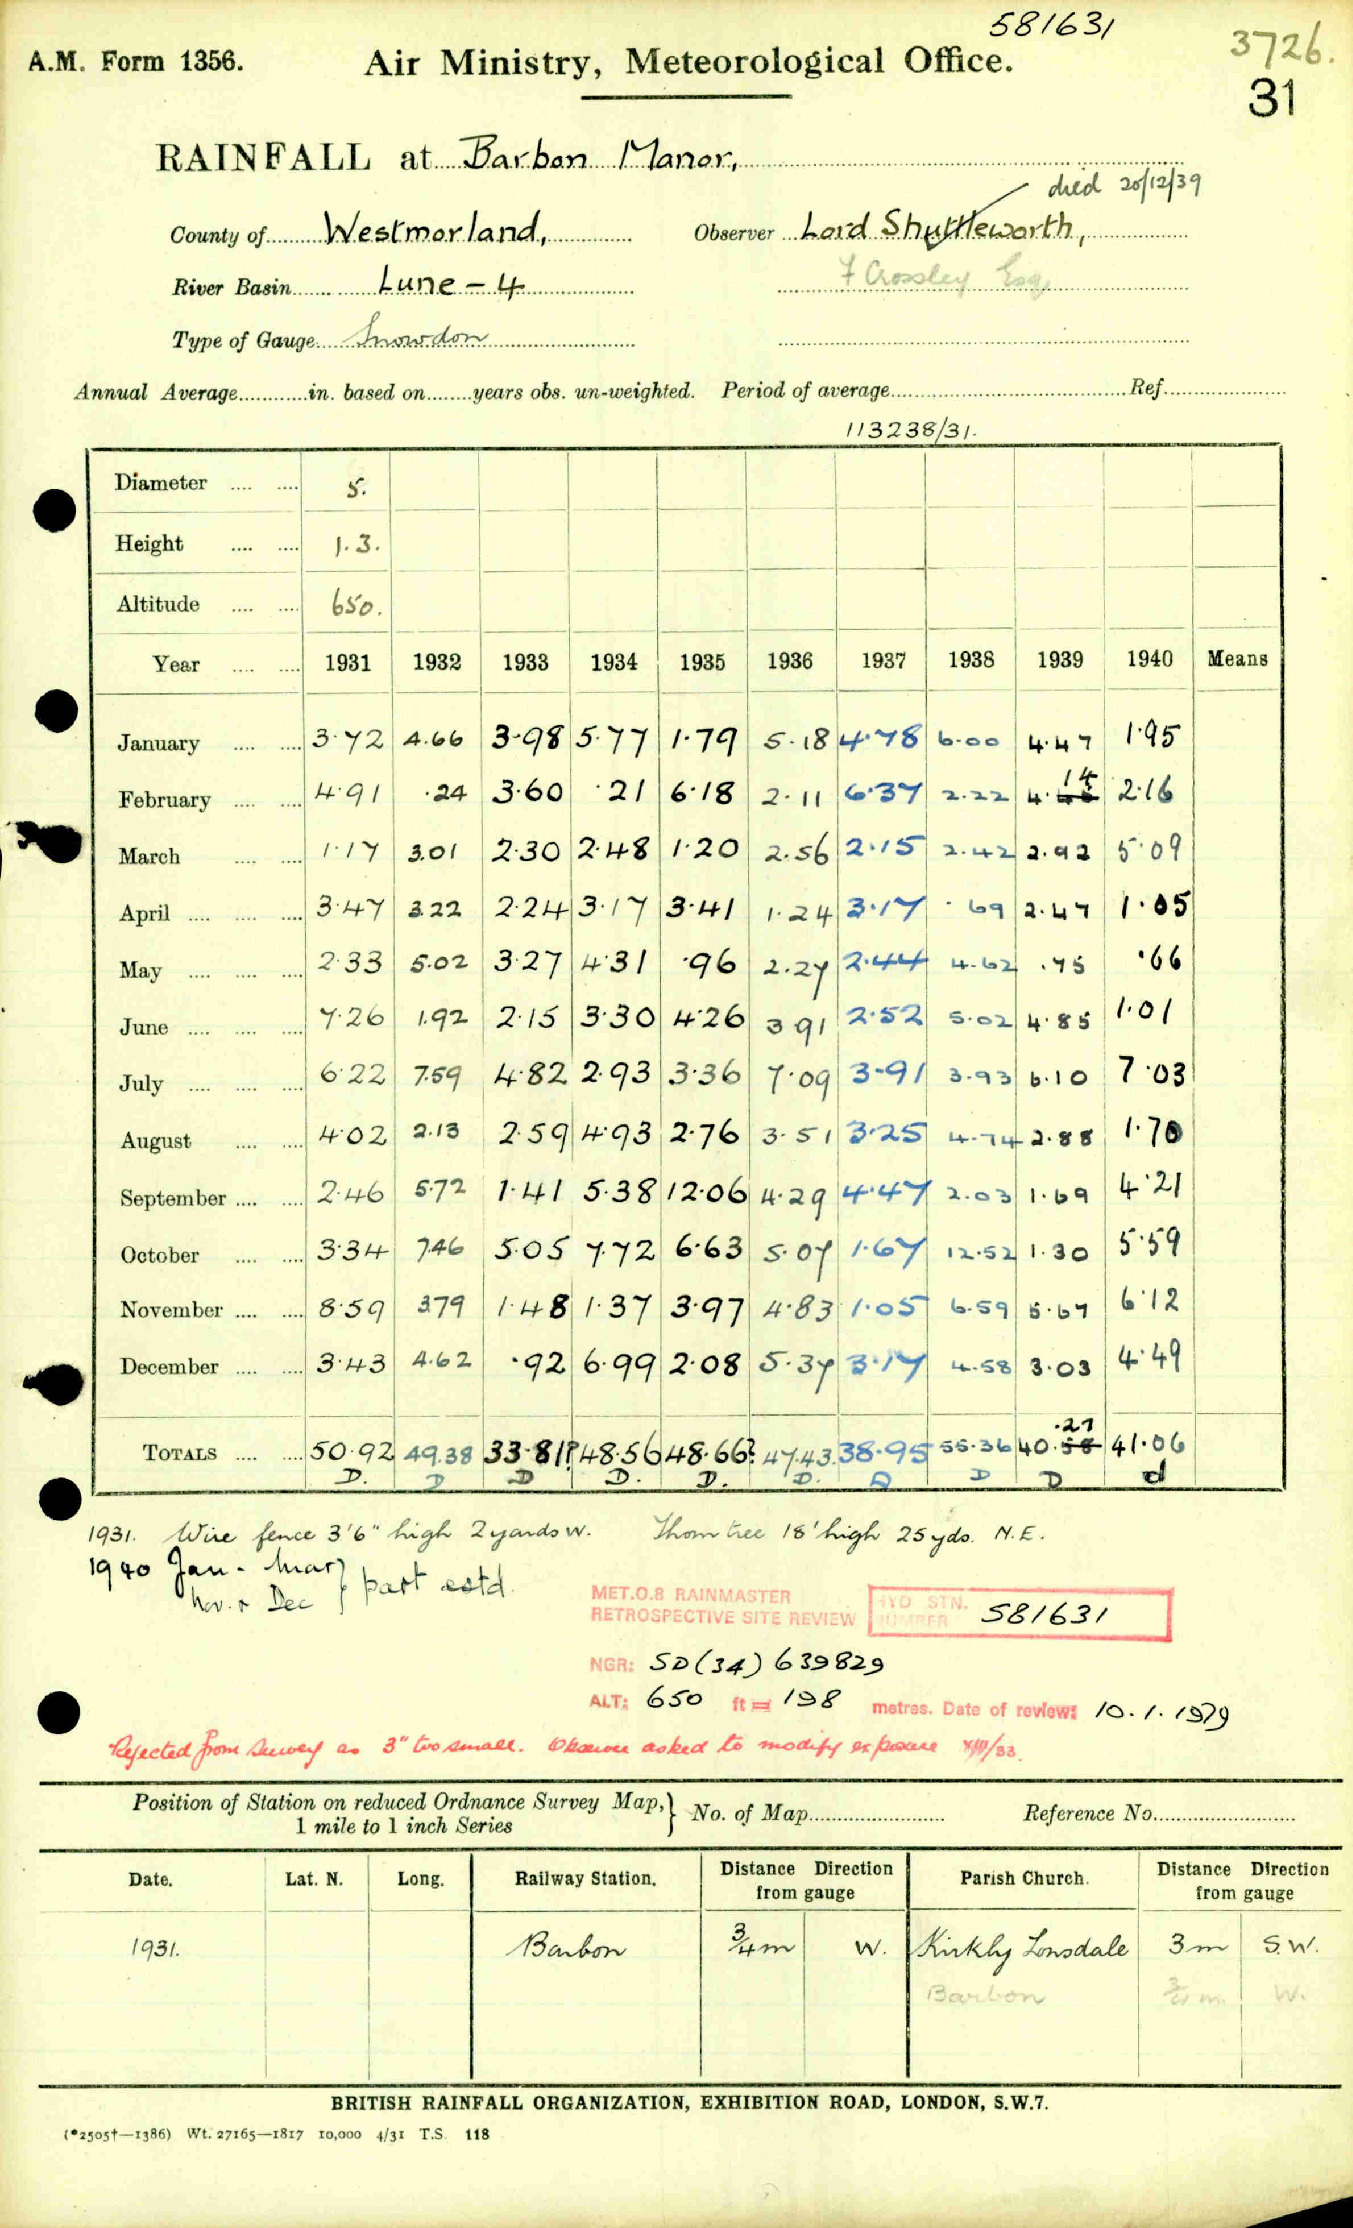 581631
3726.
A.M. Form 1356. Air Ministry, Meteorological Office.
31
RAINFALL at Barbon Manor,
died 20/12/39
County of Westmorland, Observer Lord Shuttleworth,
River Basin Lune - 4 F Crossley Esq.
Type of Gauge Snowdon
Annual Average in. based on years obs. un-weighted. Period of average Ref.
113238/31.
Diameter 5.
Height 1.3.
Altitude 650.
Year 1931 1932 1933 1934 1935 1936 1937 1938 1939 1940 Means
January 3.72 4.66 3.98 5.77 1.79 5.18 4.78 6.00 4.47 1.95
February 4.91 .24 3.60 .21 6.18 2.11 6.37 2.22 4.14 2.16
March 1.17 3.01 2.30 2.48 1.20 2.56 2.15 2.42 2.92 5.09
April 3.47 3.22 2.24 3.17 3.41 1.24 3.17 .69 2.47 1.05
May 2.33 5.02 3.27 4.31 .96 2.27 2.44 4.62 .75 .66
June 7.26 1.92 2.15 3.30 4.26 3.91 2.52 5.02 4.85 1.01
July 6.22 7.59 4.82 2.93 3.36 7.09 3.91 3.93 6.10 7.03
August 4.02 2.13 2.59 4.93 2.76 3.51 3.25 4.74 2.88 1.70
September 2.46 5.72 1.41 5.38 12.06 4.29 4.47 2.03 1.69 4.21
October 3.34 7.46 5.05 7.72 6.63 5.07 1.67 12.52 1.30 5.59
November 8.59 3.79 1.48 1.37 3.97 4.83 1.05 6.59 5.67 6.12
December 3.43 4.62 .92 6.99 2.08 5.37 3.17 4.58 3.03 4.49
TOTALS 50.92 49.38 33.81? 48.56 48.66? 47.43 38.95 55.36 40.27 41.06
D. D D D. D. D. D D D d
1931. Wire fence 3'6" high 2 yards W. Thorn tree 18' high 25 yds. N.E.
1940 Jan - Mar } part estd.
Nov. & Dec
MET.O.8 RAINMASTER
RETROSPECTIVE SITE REVIEW HYD STN. NUMBER 581631
NGR: SD(34) 639829
ALT: 650 ft = 198 metres. Date of review: 10.1.1979
Rejected from Survey as 3" too small. Observer asked to modify exposure XII/33.
Position of Station on reduced Ordnance Survey Map, } No. of Map Reference No.
1 mile to 1 inch Series
Date. Lat. N. Long. Railway Station. Distance Direction from gauge Parish Church. Distance Direction from gauge
1931. Barbon 3/4 m W. Kirkby Lonsdale 3 m S.W.
Barbon 3/4 m. W.
BRITISH RAINFALL ORGANIZATION, EXHIBITION ROAD, LONDON, S.W.7.
(*2505†—1386) Wt. 27165—1817 10,000 4/31 T.S. 118